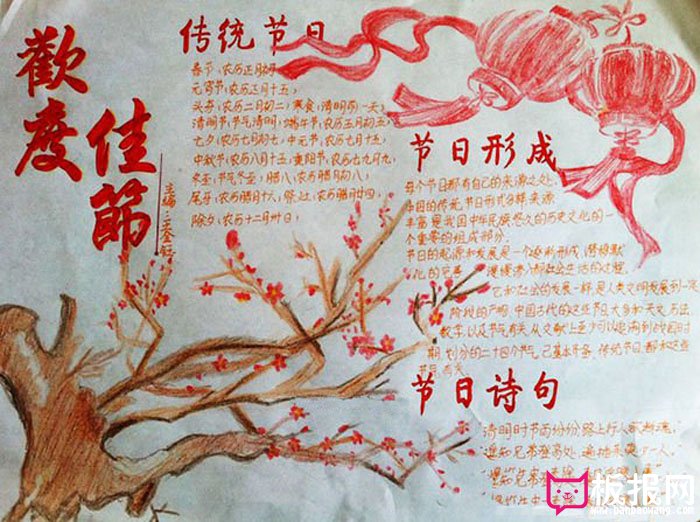 歡度
佳節
主编：
传统节日
春节(农历正月初一)
元宵节(农历正月十五)
头牙(农历二月初二)寒食(清明前一天)
清明节(节气清明)端午节(农历五月初五)
七夕(农历七月初七)中元节(农历七月十五)
中秋节(农历八月十五)重阳节(农历九月九)
冬至(节气冬至)腊八(农历腊月初八)
尾牙(农历腊月十六)祭灶(农历腊月廿四)
除夕(农历十二月卅日)
节日形成
每个节日都有自己的来源之处,
中国的传统节日形式多样来源
丰富是我国中华民族悠久的历史文化的一
个重要的组成部分.
节日的起源和发展是一个逐渐形成,潜移默
化的完善 慢慢渗入到社会生活的过程.
它和社会的发展一样,是人类文明发展到一定
阶段的产物,中国古代的这些节日大多和天文历法
数学,以及节气有关,从文献上至少可以追溯到战国时
期 划分的二十四个节气已基本齐备 传统节日都和这些
节气有关
节日诗句
清明时节雨纷纷,路上行人欲断魂.
遥知兄弟登高处 遍插茱萸少一人.
遥知兄弟
板报网
www.banbaowang.com